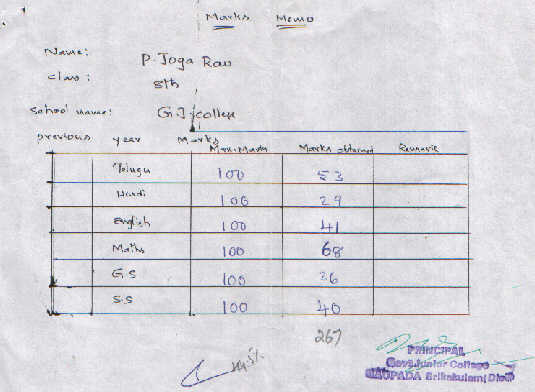 Marks Memo
Name: P. Joga Rao
Class: 8th
School name: G.J. college
previous year Marks
Max. Mark Marks obtained Remark
Telugu 100 53
Hindi 100 29
English 100 41
Maths 100 68
G.S 100 36
S.S 100 40
267
PRINCIPAL
Govt. Junior College
Srikakulam Dist